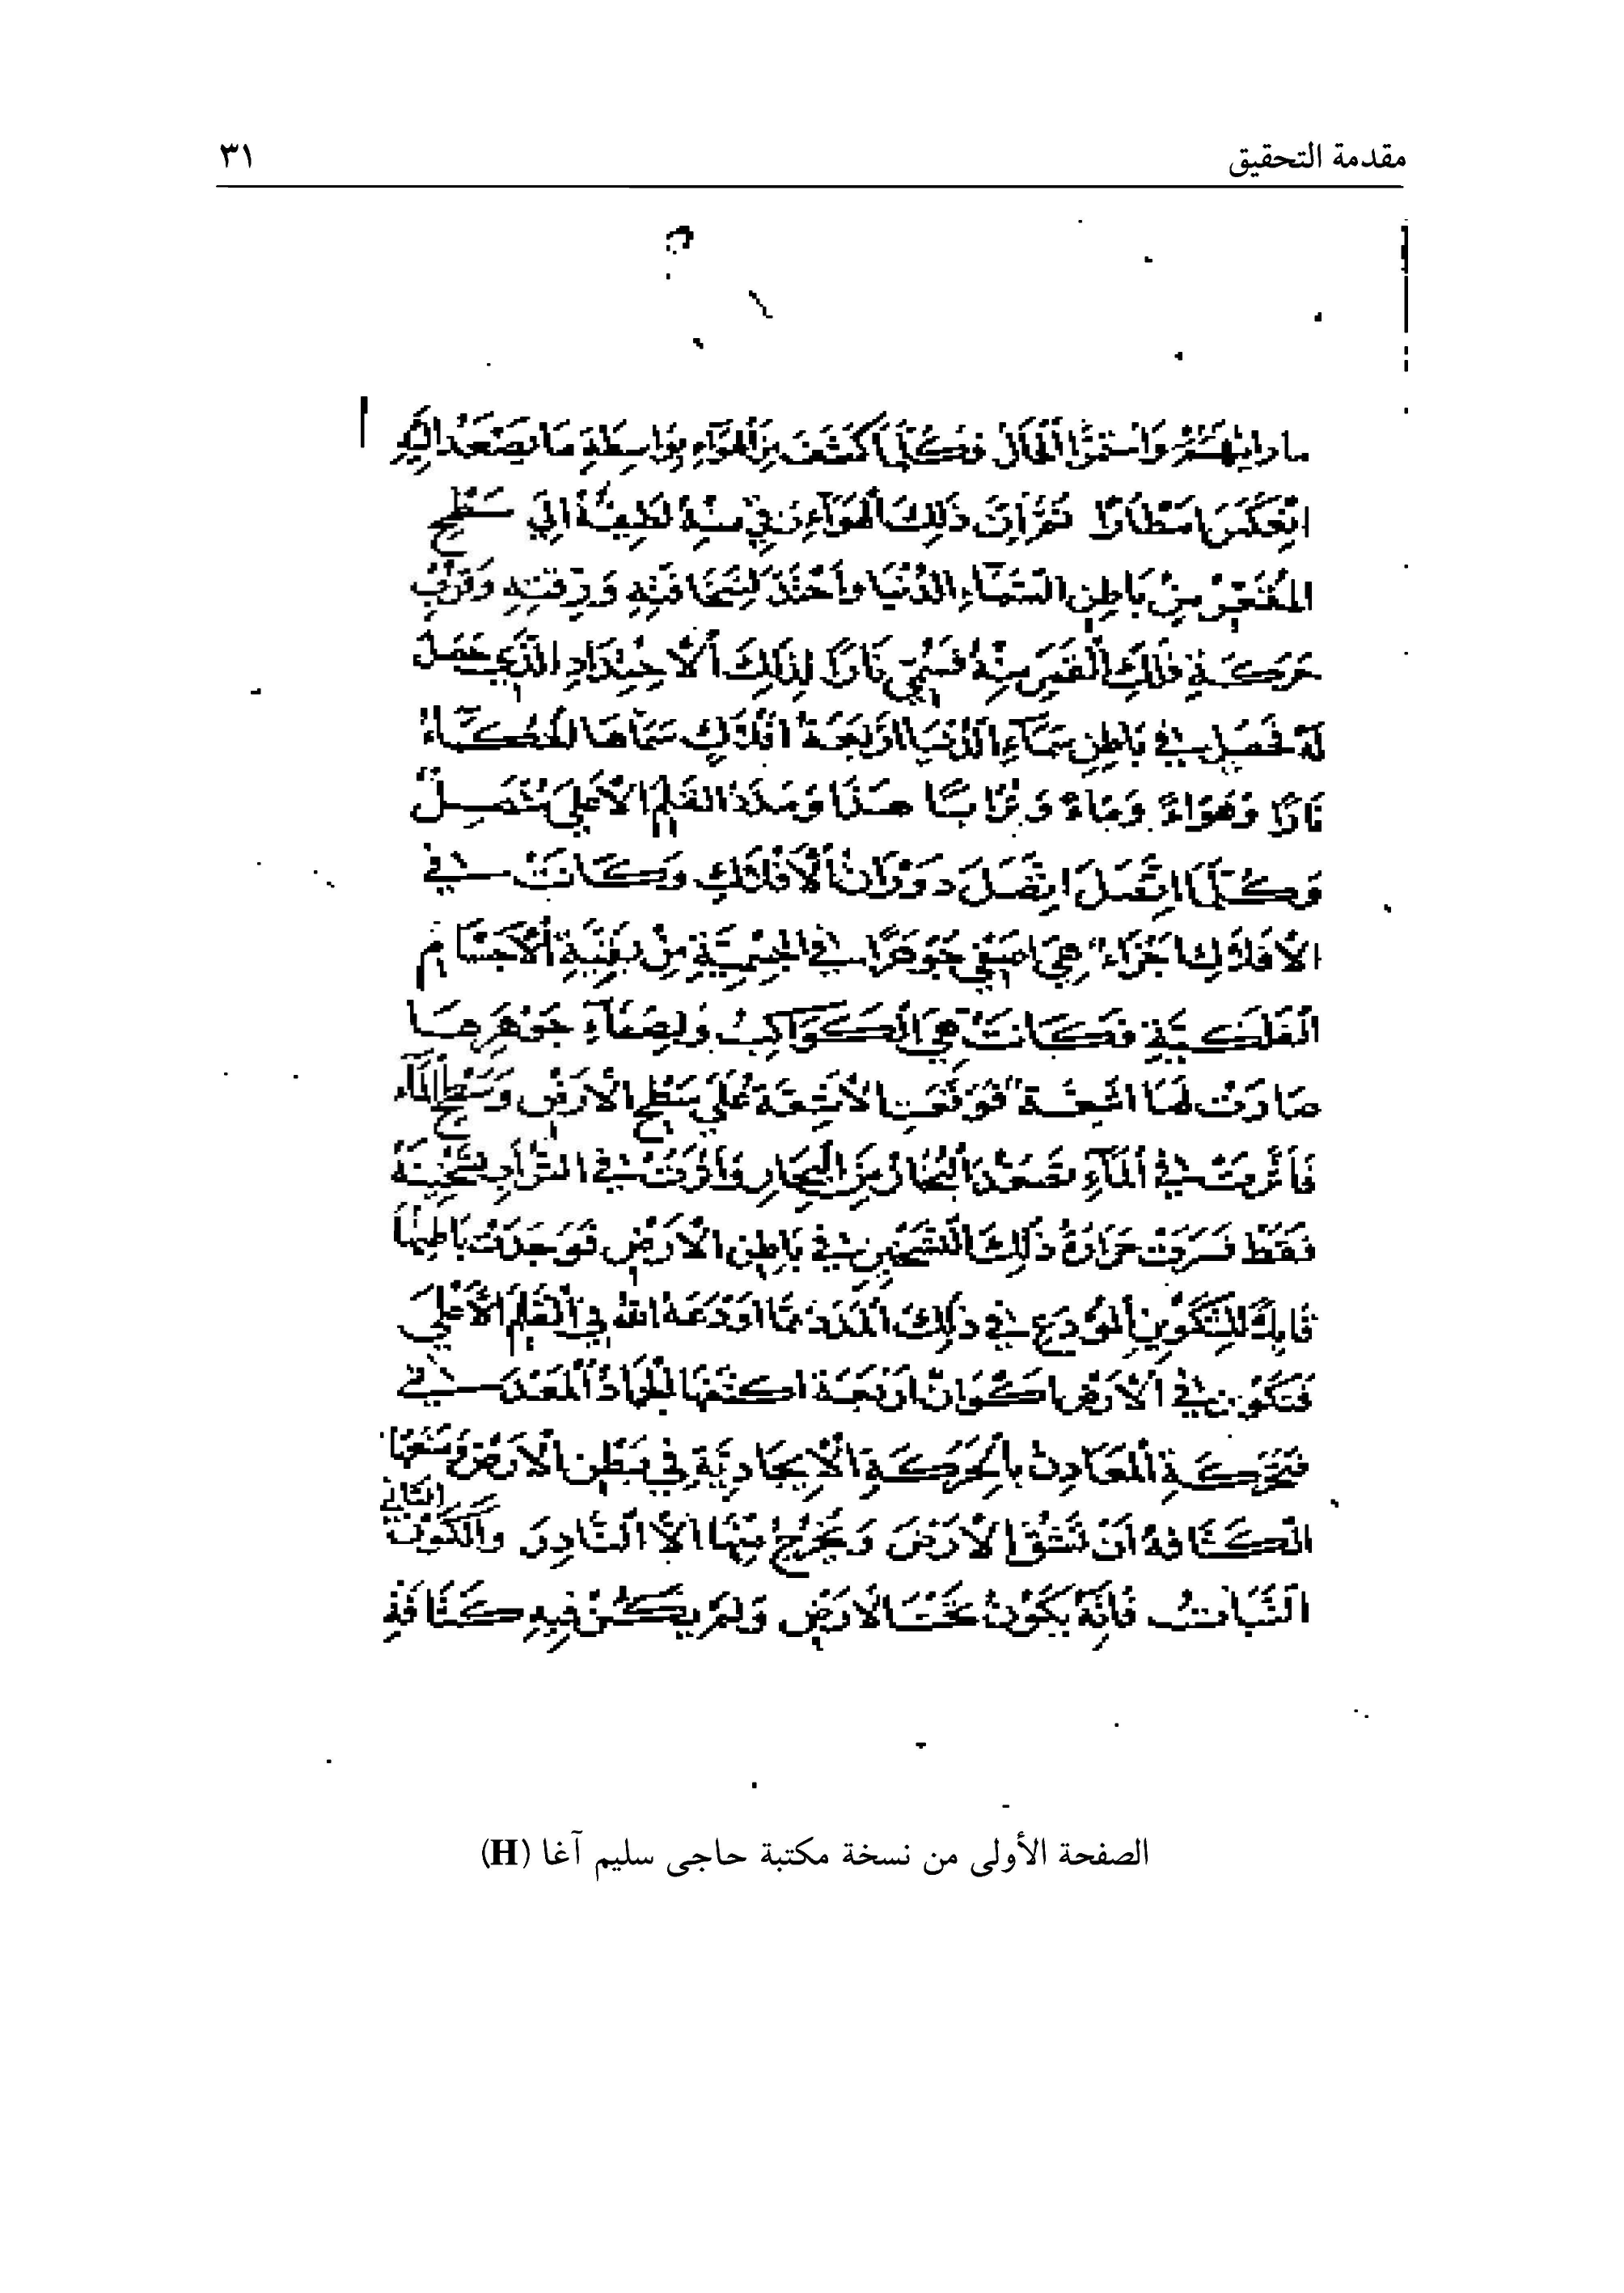 مقدمة التحقيق
٣١
وَاستمرَّ الحَالُ فكلَّمَا كَثفَ مِنَ الهَوَاءِ بوَاسِطةِ مَا يَصْعَدُ اليْهِ
انِعَكَسَ امَطَارًا ثمَّ اِنَّ ذَلِكَ الهَوَاءَ نَ فى منهُ لطيفهُ الي سَطْح
المُقَعَّرِ مِنْ بَاطِنِ السَّمَاءِ الدُّنيَا وَاحْتَدَّ لِسَخَافتِهِ وَرِقتِهِ وَقرْبُ
حَركَةِ فلكِ القَمَرِ مِنْهُ فسُمّيَ نَارًا لِذلِكَ الاحْتِدَادِ الذِّي حَصَلَ
لهُ فحَصَلَ في بَاطِنِ سَمَاءِ الدُّنيَا ارْبَعَة افلاكٍ سَمَاهَا الحُكَمَاءُ
نَارًا وَهَوَاءً وَمَاءً وَتُرَابًا هَذَا وَمَدَدُ القَلمِ الأعْلىَ مُتَّصِلٌ
وَكُلمَا اتصَلَ اتَّصَلَ دَوَرَانُ الأفلاكِ وَكَانَتْ في
الأفلاكِ اجزَاء هِيَ اصَفى جَوهَرًا في الجسميَّةِ مِنْ بَقِيَةِ الأجْسَام
الفَلكِيَّةِ فكَانَتْ هِيَ الكَوَاكِبُ وَلِصَفاءِ جَوْهَرِهَا
صَارَتْ لهَا اشِعَة فوَقعَتِ الأشِعَة عَلىَ سَطْح الأرْضِ وَسَطْح المَاء
فَأثرَتْ في المَاءِ تصَعُّدَ البُخَارِ مِنَ البِحَارِ وَأثرَتْ في الترَابِ
فقَط فسَرَتْ حَرَارَةُ ذَلِكَ التسْخِينِ في بَاطِنِ الأرْضِ فوَجَدَتْ بَاطِنهَا
قابِلاً للتكْوِينِ المُودَع في ذلِكَ المَدَدِ ممَّا اودَعَهُ اللهُ في القَلمِ الأعْلىَ
فتَكَوَّنَ في الأرْضِ اكْوَانٌ ارْبَعَة اكثفهَا الجَمَادُ المَعْدَ في
فتحَرَّكَة المَعَادِنُ بالحَركَةِ الإيجَادِيَّةِ في بَطْنِ الأرْضِ وَمَنَعَهَا
الكثَافة انْ تشُقَّ الأرْضَ وَتخْرُجَ مِنْهَا الاَّ النَّادِرَ وَالكَوْنُ الثَّانِي
النَّبَاتُ فَانهُ يَكُوْنُ تحْتَ الارْضِ وَلمْ يَكُنْ فِيهِ كَثَافة
الصفحة الأولى من نسخة مكتبة حاجى سليم آغا (H)